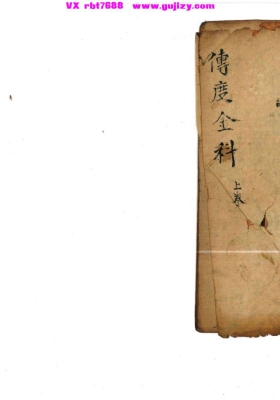 VX rbt7688 www.gujizy.com
傳度金科
上卷